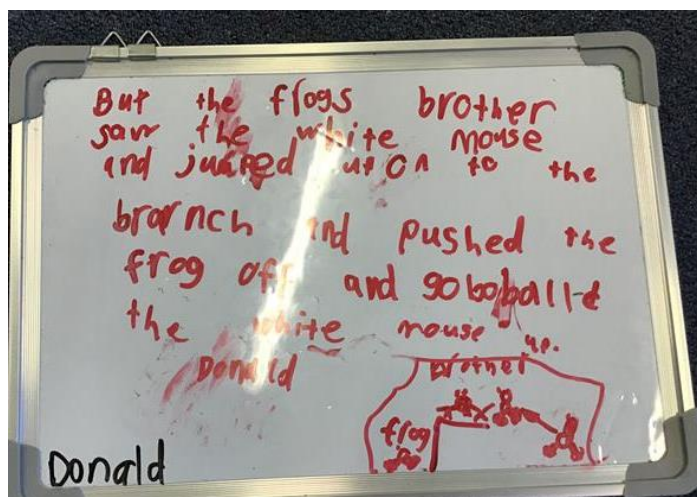 But the flogs brother
saw the white mouse
and jumped out on to the
brarnch and pushed the
frog off and goboball-d
the white mouse up.
Donald
brother
frog
Donald